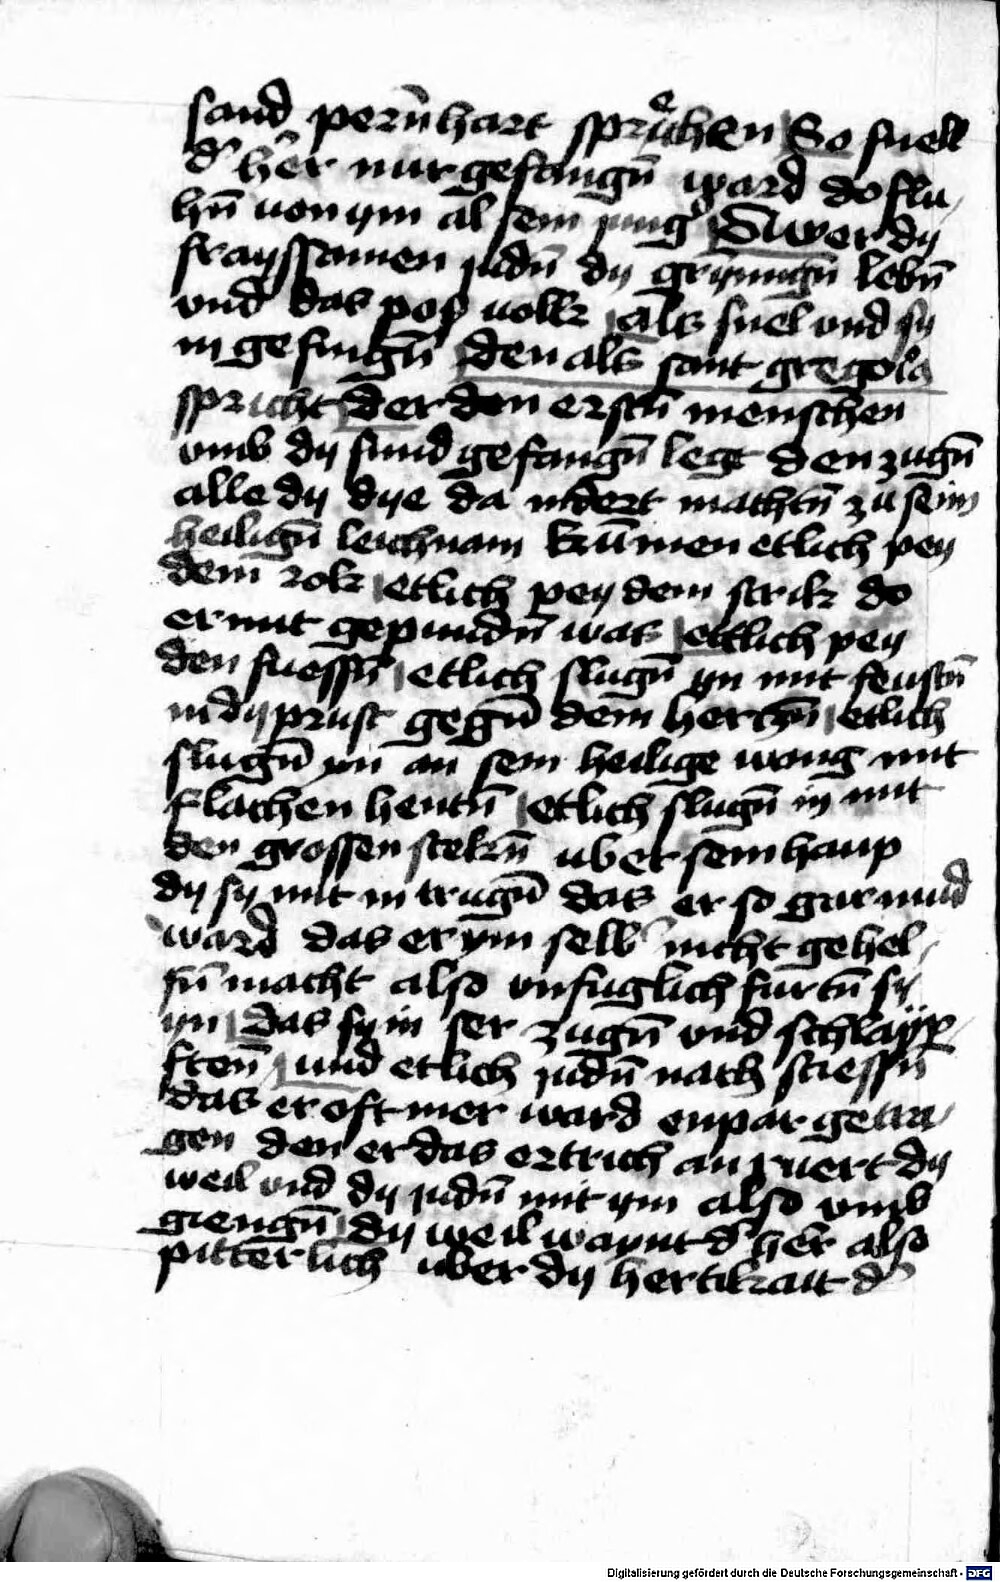 sand pern̄hart sprͤchen So snell
d' her̄ nur gefangn̄ ward do flu-
hn̄ von ym al sein jung' Awer dy
frayssamen judn̄ dy grymign̄ lebn̄
vnd das pos volk als snel vnd sy
in gefingn̄ den als sant gregor
spricht der den erstn̄ menschen
vmb dy sund gefangn̄ legt den zugn̄
alle dy dye da indert machtn̄ zu seim
heilign̄ leichnam kumen etlich pey
dem rok etlich pey dem strik do
er mit gepundn̄ was etlich pey
den fuessn̄ etlich slugn̄ yn mit feustn̄
in dy prust gegn̄ dem hertzn̄ etlich
slugn̄ yn an sein heilige wang mit
flachen hentn̄ etlich slugn̄ in mit
den grossen stekn̄ vber sein haup
dy sy mit in trugn̄ das er so gar mud
ward das er ym selb nicht gehel-
fn̄ macht also vnfuglich furtn̄ sy
yn das sy in ser zugn̄ vnd schlayp-
ften̄ und etlich judn̄ nach stiessn̄
das er oft mer ward enpar getra-
gen den er das ertrich an ruert dy
weil vnd dy judn̄ mit ym also vmb
giengn̄ dy weil waynt d' her̄ also
pitterlich vber dy hertikait d'
Digitalisierung gefördert durch die Deutsche Forschungsgemeinschaft - DFG